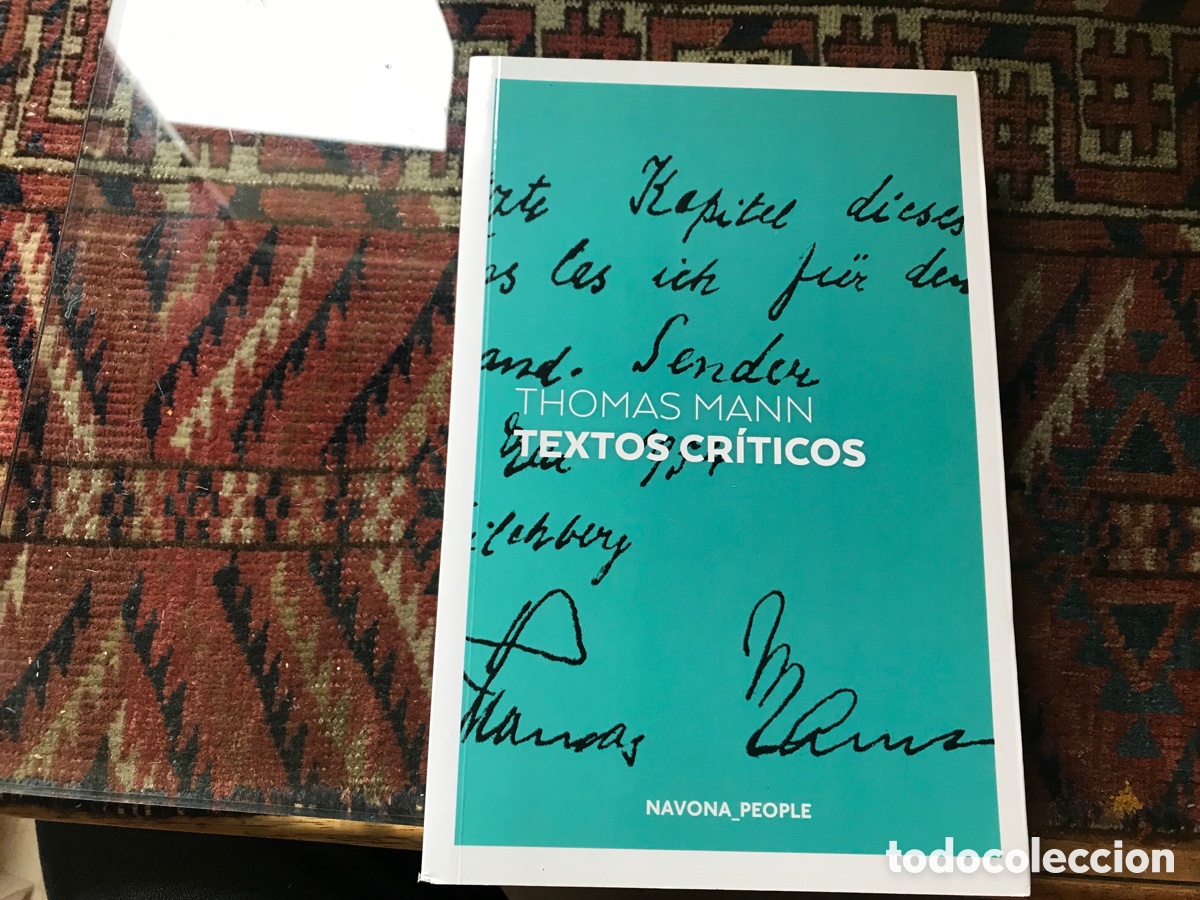 Kapitel dieses
las ich für den
and. Sender
THOMAS MANN
TEXTOS CRÍTICOS
1954
ilchberg
Thomas Mann
NAVONA_PEOPLE
todocoleccion